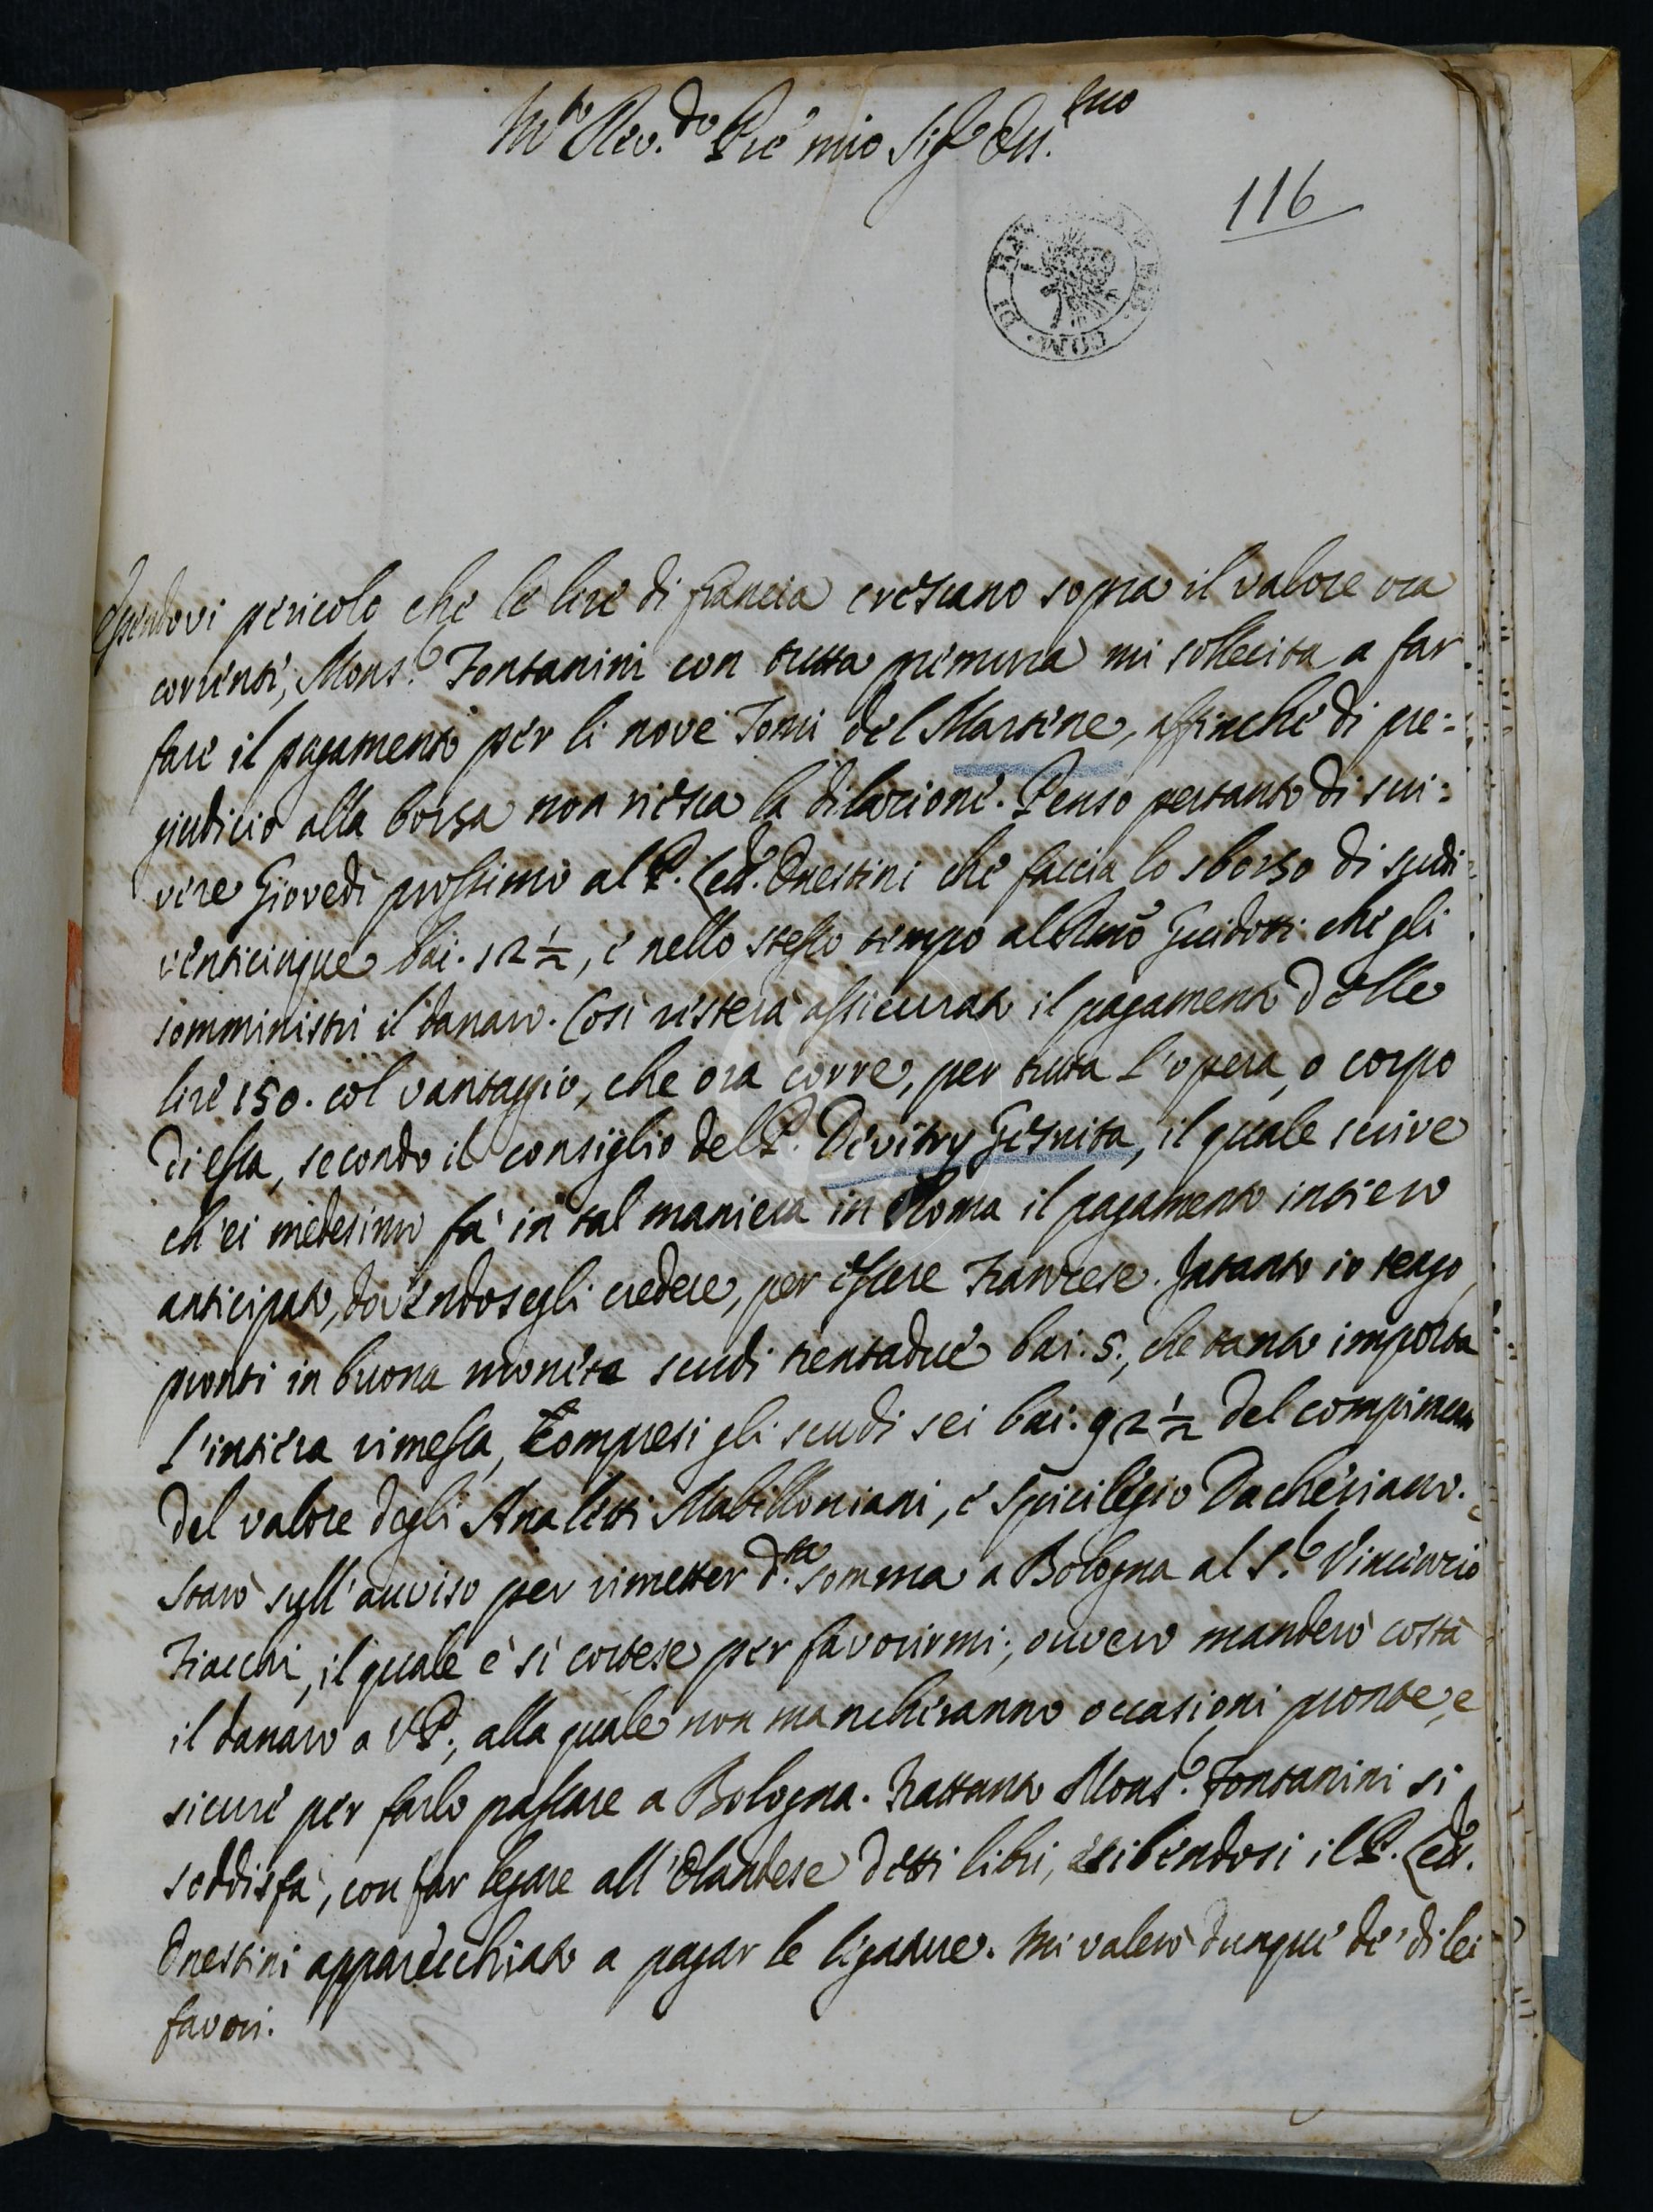 M.to Rev.do Pre mio Sig.re Oss.mo
116
Essendovi pericolo che le lire di francia crescano sopra il valore ora
corrente, Mons.r Fontanini con tutta premura mi sollecita a far
fare il pagamento per li nove Tomi del Martene, affinche di pre=
giudicio alla borsa non riesca la dilazione. Penso pertanto di scri=
vere Giovedì prossimo al P. Onestini che faccia lo sborso di scudi
venticinque bai. 12 ½, e nello stesso tempo al Guidotti che gli
somministri il danaro. Così resterà assicurato il pagamento delle
lire 150. col vantaggio, che ora corre, per tutta l'opera, o corpo
di essa, secondo il consiglio del P. Devitry Gesuita, il quale scrive
ch'ei medesimo fà in tal maniera in Roma il pagamento intiero
anticipato, dovendosegli credere, per essere Franzese. Intanto io tengo
pronti in buona moneta scudi trentadue bai. 5., che tanto importa
l'intiera rimessa, compresi gli scudi sei bai. 92 ½ del compimento
del valore degli Analetti Mabilloniani, e Spicilegio Dacheriano.
Starò sull'avviso per rimetter d.ta somma a Bologna al S.r Vincenzio
Fiacchi, il quale è sì cortese per favorirmi; ovvero manderò costà
il danaro a V.P., alla quale non mancheranno occasioni pronte, e
sicure per farlo passare a Bologna. Frattanto Mons.r Fontanini si
soddisfa, con far legare all'Olandese detti libri, esibendosi il P.
Onestini apparecchiato a pagar le ligature. Mi valerò dunque de' di lei
favori.